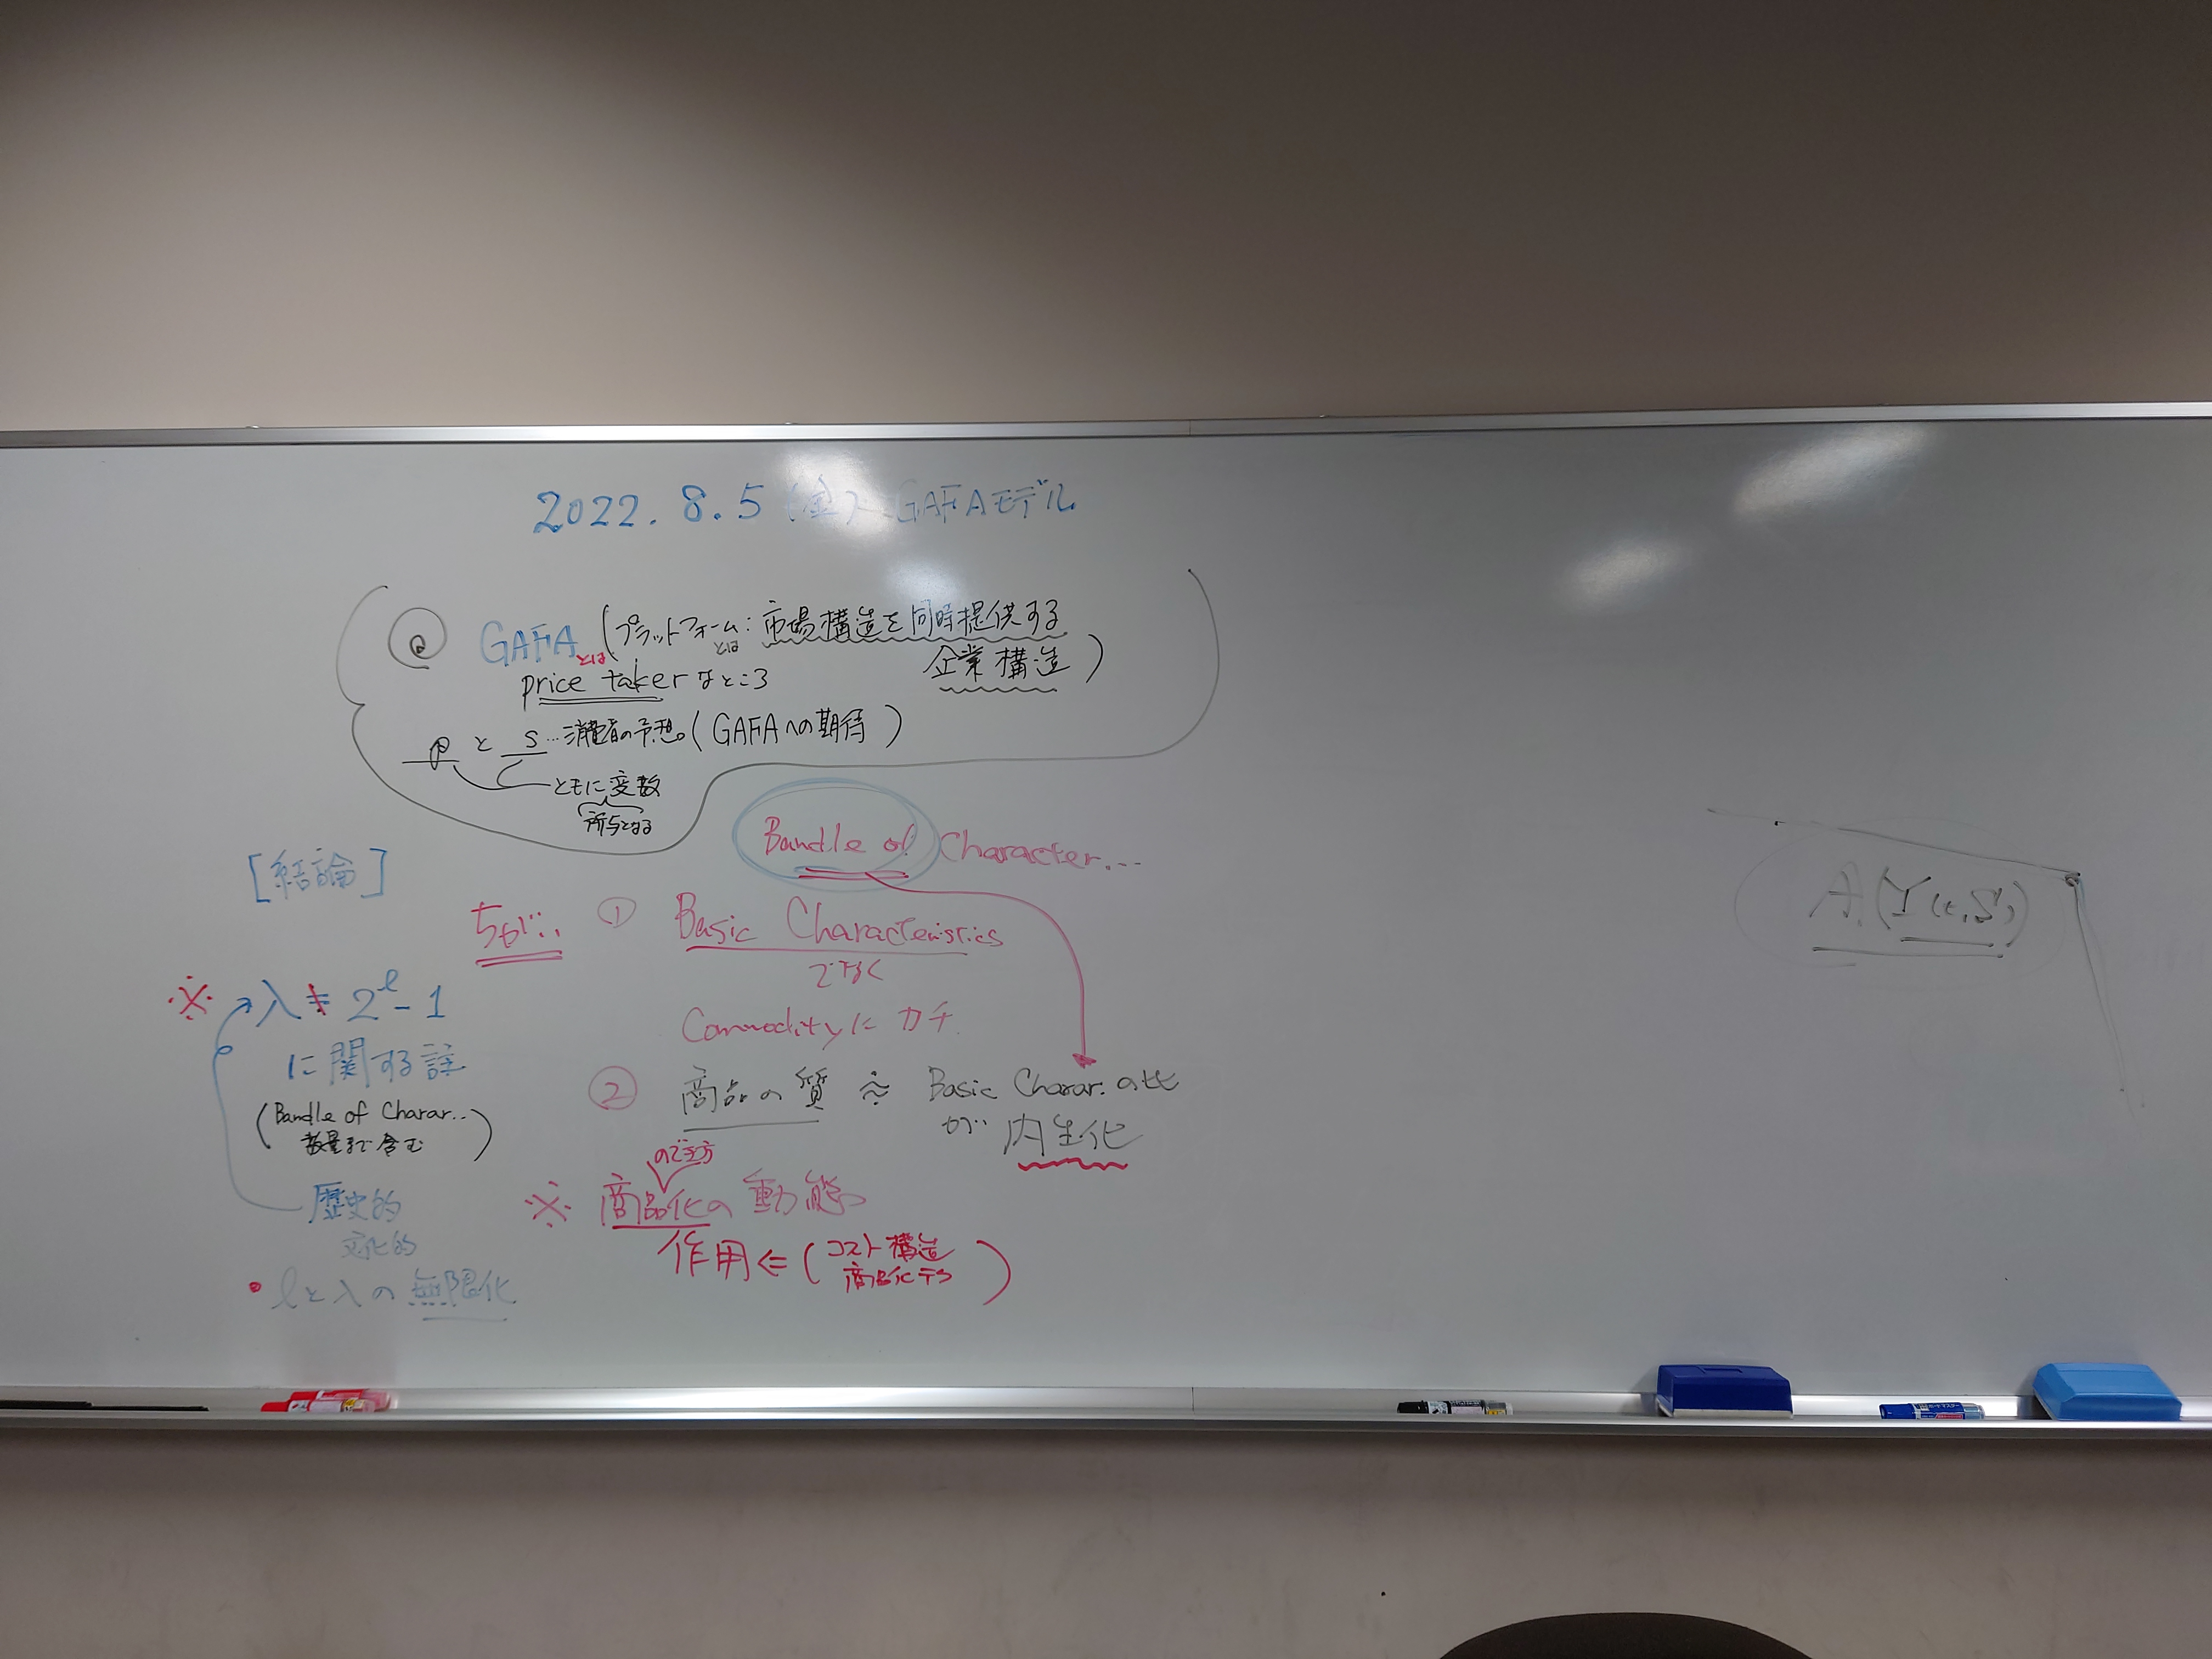 2022. 8. 5 (金) GAFAモデル
@ GAFAとは (プラットフォームとは: 市場構造を同時提供する
企業構造)
price taker なところ
p と s…消費者の予想。(GAFAへの期待)
ともに変数
所与となる
Bundle of Character…
[結論]
ちがい ① Basic Characteristics
でなく
Commodityに カチ
※ λ ≠ 2^ℓ - 1
に関する註
(Bundle of Charar..
数量まで含む)
② 商品の質 ≈ Basic Charar. の比
が 内生化
歴史的
文化的
※ 商品化の動態
のでき方
作用 ⇐ (コスト構造
商品化する)
• ℓとλの無限化
A(Y(t,S))